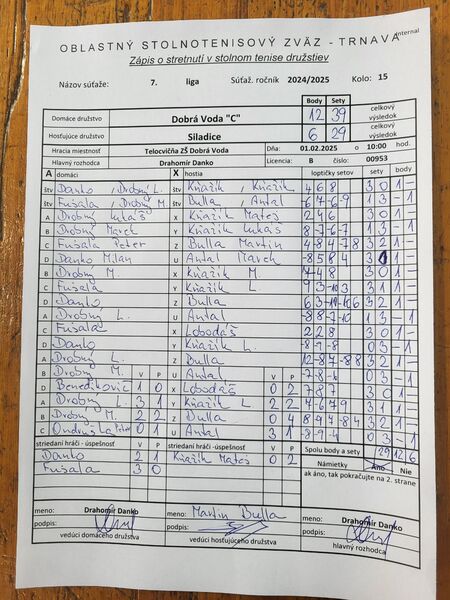 Internal
OBLASTNÝ STOLNOTENISOVÝ ZVÄZ - TRNAVA
Zápis o stretnutí v stolnom tenise družstiev
Názov súťaže: 7. liga Súťaž. ročník 2024/2025 Kolo: 15
Body Sety
Domáce družstvo Dobrá Voda "C" 12 39 celkový výsledok
Hosťujúce družstvo Siladice 6 29 celkový výsledok
Hracia miestnosť Telocvičňa ZŠ Dobrá Voda Dňa: 01.02.2025 o 10:00 hod.
Hlavný rozhodca Drahomír Danko Licencia: B číslo: 00953
A domáci X hostia loptičky setov sety body
štv Danko, Drobný L. štv Kňažík, Kňažík 4 6 8 3 0 1 -
štv Fušala, Drobný M. štv Bulla, Antal 6 -7 -6 -9 1 3 - 1
A Drobný Lukáš X Kňažík Matej 2 4 6 3 0 1 -
B Drobný Marek Y Kňažík Lukáš 8 -7 -6 -7 1 3 - 1
C Fušala Peter Z Bulla Martin 3 2 1 -
D Danko Milan U Antal Marek -8 5 8 4 3 1 1 -
B Drobný M. X Kňažík M. 3 0 1 -
C Fušala Y Kňažík 9 3 -10 3 3 1 1 -
D Danko Z Bulla 3 2 1 -
A Drobný L. U Antal 1 3 - 1
C Fušala X Lobodáš 2 2 8 3 0 1 -
D Danko Y Kňažík L. 0 3 - 1
A Drobný L. Z Bulla 3 2 1 -
B Drobný M. V P U Antal V P -7 -8 -6 0 3 - 1
D Benedikovič 1 0 X Lobodáš 0 2 7 8 7 3 0 1 -
A Drobný L. 3 1 Y Kňažík L. 2 2 3 1 1 -
B Drobný M. 2 2 Z Bulla 0 4 3 2 1 -
C 0 1 U Antal 3 1 -8 -9 -4 0 3 - 1
striedaní hráči - úspešnosť V P striedaní hráči - úspešnosť V P Spolu body a sety 39 29 12 6
Danko 2 1 Kňažík Matej 0 2 Námietky Áno Nie
Fušala 3 0 ak áno, tak pokračujte na 2. strane
Drahomír Danko meno: Martin Bulla Drahomír Danko
meno:
podpis: podpis:
vedúci domáceho družstva vedúci hosťujúceho družstva hlavný rozhodca